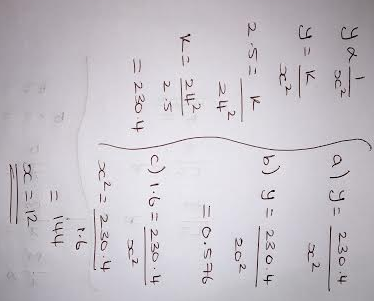 y α 1/x²
y = K/x²
2.5 = K/24²
K = 24²/2.5
= 230.4
a) y = 230.4/x²
b) y = 230.4/20²
= 0.576
c) 1.6 = 230.4/x²
x² = 230.4/1.6
= 144
x = 12